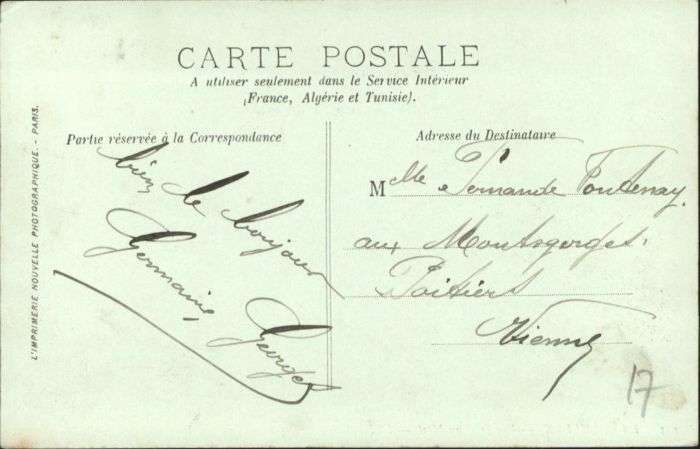 CARTE POSTALE
A utiliser seulement dans le Service Intérieur
(France, Algérie et Tunisie).
Partie réservée à la Correspondance
bien de bonjour
Germaine, Georges
Adresse du Destinataire
Mlle Fernande Fontenay
aux Montgorges.
Poitiers
Vienne
17
L'IMPRIMERIE NOUVELLE PHOTOGRAPHIQUE. - PARIS.